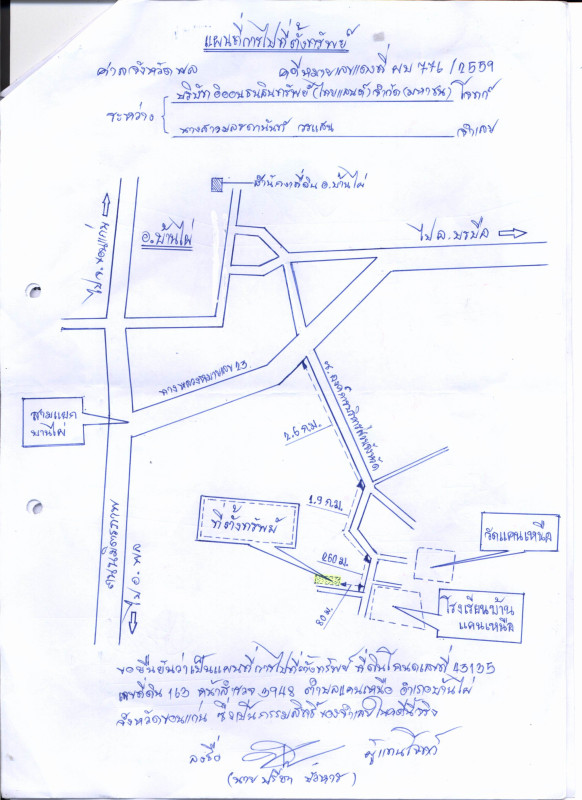 แผนที่การไปที่ตั้งทรัพย์
ศาลจังหวัดพล คดีหมายเลขแดงที่ ผบ 776/2559
ระหว่าง
บริษัทอิออนธนสินทรัพย์(ไทยแลนด์)จำกัด(มหาชน) โจทก์
จำเลย
สำนักงานที่ดิน อ.บ้านไผ่
อ.บ้านไผ่
ไป อ.บรบือ
ไป จ.ขอนแก่น
ทางหลวงหมายเลข 23
ถ.องค์การบริหารส่วนจังหวัด
สามแยก
บ้านไผ่
2.6 ก.ม.
1.9 ก.ม.
ที่ตั้งทรัพย์
วัดแคนเหนือ
260 ม.
80 ม.
โรงเรียนบ้าน
แคนเหนือ
ถนนมิตรภาพ
ไป อ.พล
ขอยืนยันว่าเป็นแผนที่การไปที่ตั้งทรัพย์ ที่ดินโฉนดเลขที่ 43135
เลขที่ดิน 163 หน้าสำรวจ 3948 ตำบลแคนเหนือ อำเภอบ้านไผ่
จังหวัดขอนแก่น ซึ่งเป็นกรรมสิทธิ์ของจำเลยในคดีนี้จริง
ลงชื่อ ผู้แทนโจทก์
(นาย ปรีชา